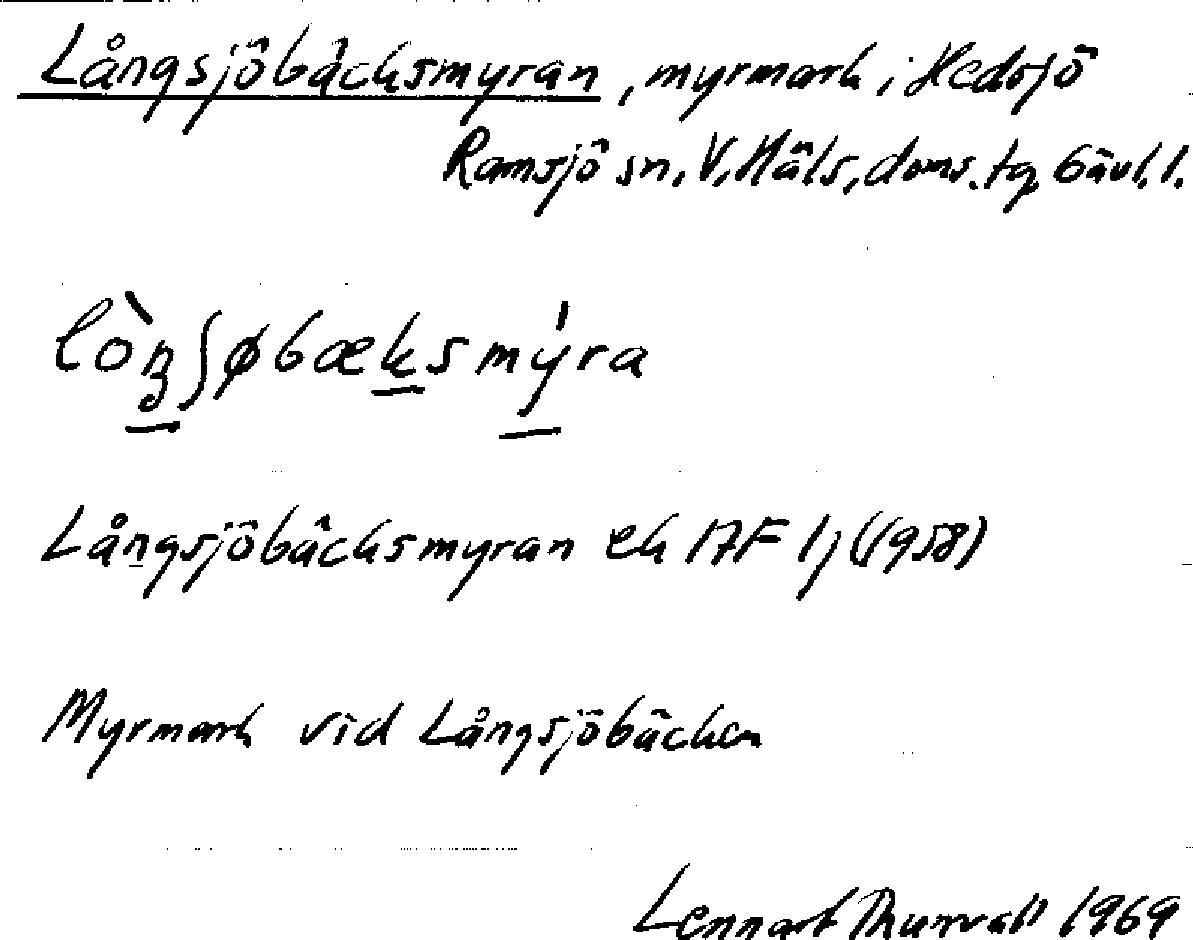 Långsjöbäcksmyran, myrmark, Hedsjö
Ramsjö sn, V. Häls, doms. tg, Gävl. l.
lòŋʃøbæksmýra
Långsjöbäcksmyran ek 17F 1j (1958)
Myrmark vid Långsjöbäcken
Lennart Thunvall 1969